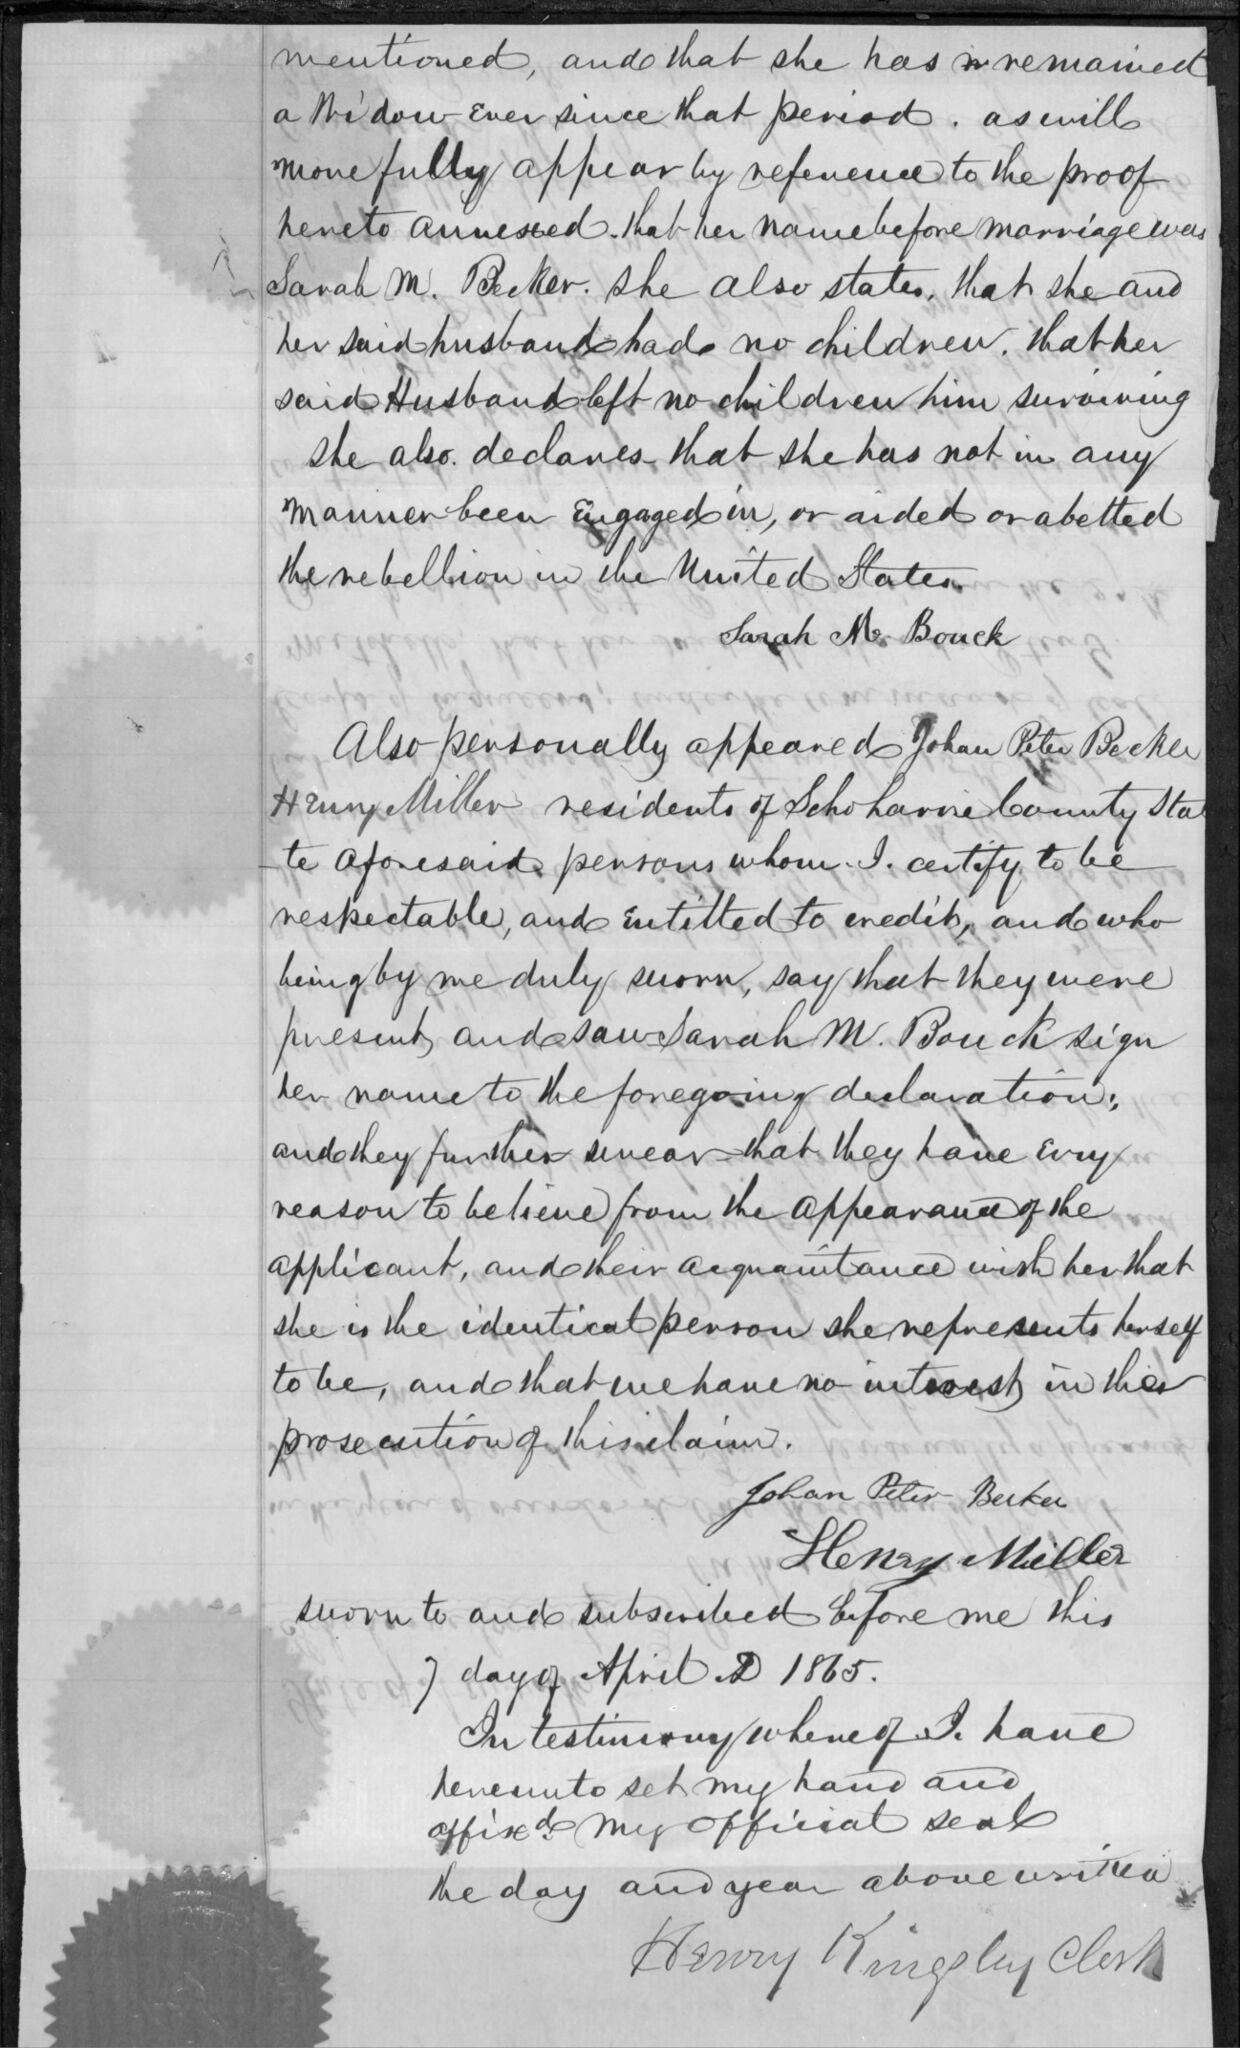 mentioned, and that she has remained
a Widow ever since that period. as will
more fully appear by reference to the proof
hereto annexed. that her name before marriage was
Sarah M. Becker. she also states, that she and
her said husband had no children. that her
said Husband left no children him surviving
she also. declares that she has not in any
manner been Engaged in, or aided or abetted
the rebellion in the United States.
Sarah M. Bouck
Also personally appeared Johan Peter Becker
Henry Miller residents of Schoharie County Sta
te aforesaid persons whom I. certify to be
respectable, and Entitled to credit, and who
being by me duly sworn, say that they were
present and saw Sarah M. Bouck sign
her name to the foregoing declaration;
and they further swear that they have Evry
reason to believe from the appearance of the
applicant, and their acquaintance with her that
she is the identical person she represents herself
to be, and that we have no interest in the
prosecution of this claim.
Johan Peter Becker
Henry Miller
sworn to and subscribed before me this
7 day of April AD 1865.
In testimony whereof I. have
hereunto set my hand and
affixd my official seal
the day and year above written
Henry Kingsley Clerk